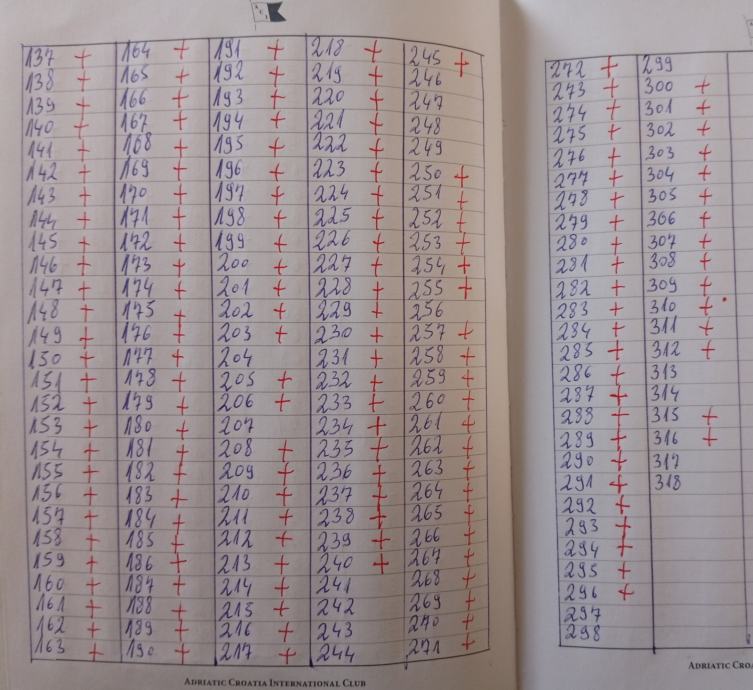 137 +
138 +
139 +
140 +
141 +
142 +
143 +
144 +
145 +
146 +
147 +
148 +
149 +
150 +
151 +
152 +
153 +
154 +
155 +
156 +
157 +
158 +
159 +
160 +
161 +
162 +
163 +
164 +
165 +
166 +
167 +
168 +
169 +
170 +
171 +
172 +
173 +
174 +
175 +
176 +
177 +
178 +
179 +
180 +
181 +
182 +
183 +
184 +
185 +
186 +
187 +
188 +
189 +
190 +
191 +
192 +
193 +
194 +
195 +
196 +
197 +
198 +
199 +
200 +
201 +
202 +
203 +
204
205 +
206 +
207
208 +
209 +
210 +
211 +
212 +
213 +
214 +
215 +
216 +
217 +
218 +
219 +
220 +
221 +
222 +
223 +
224 +
225 +
226 +
227 +
228 +
229 +
230 +
231 +
232 +
233 +
234 +
235 +
236 +
237 +
238 +
239 +
240 +
241
242
243
244
245 +
246
247
248
249
250 +
251 +
252 +
253 +
254 +
255 +
256
257 +
258 +
259 +
260 +
261 +
262 +
263 +
264 +
265 +
266 +
267 +
268 +
269 +
270 +
271 +
ADRIATIC CROATIA INTERNATIONAL CLUB
272 +
273 +
274 +
275 +
276 +
277 +
278 +
279 +
280 +
281 +
282 +
283 +
284 +
285 +
286 +
287 +
288 +
289 +
290 +
291 +
292 +
293 +
294 +
295 +
296 +
297
298
299
300 +
301 +
302 +
303 +
304 +
305 +
306 +
307 +
308 +
309 +
310 +
311 +
312 +
313
314
315 +
316 +
317
318
ADRIATIC CROA